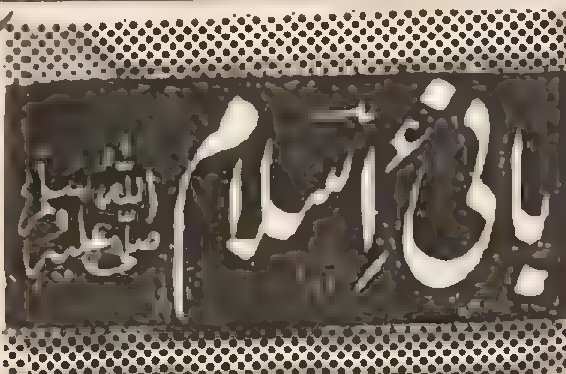 بانیٔ اسلام صلی اللہ علیہ وسلم